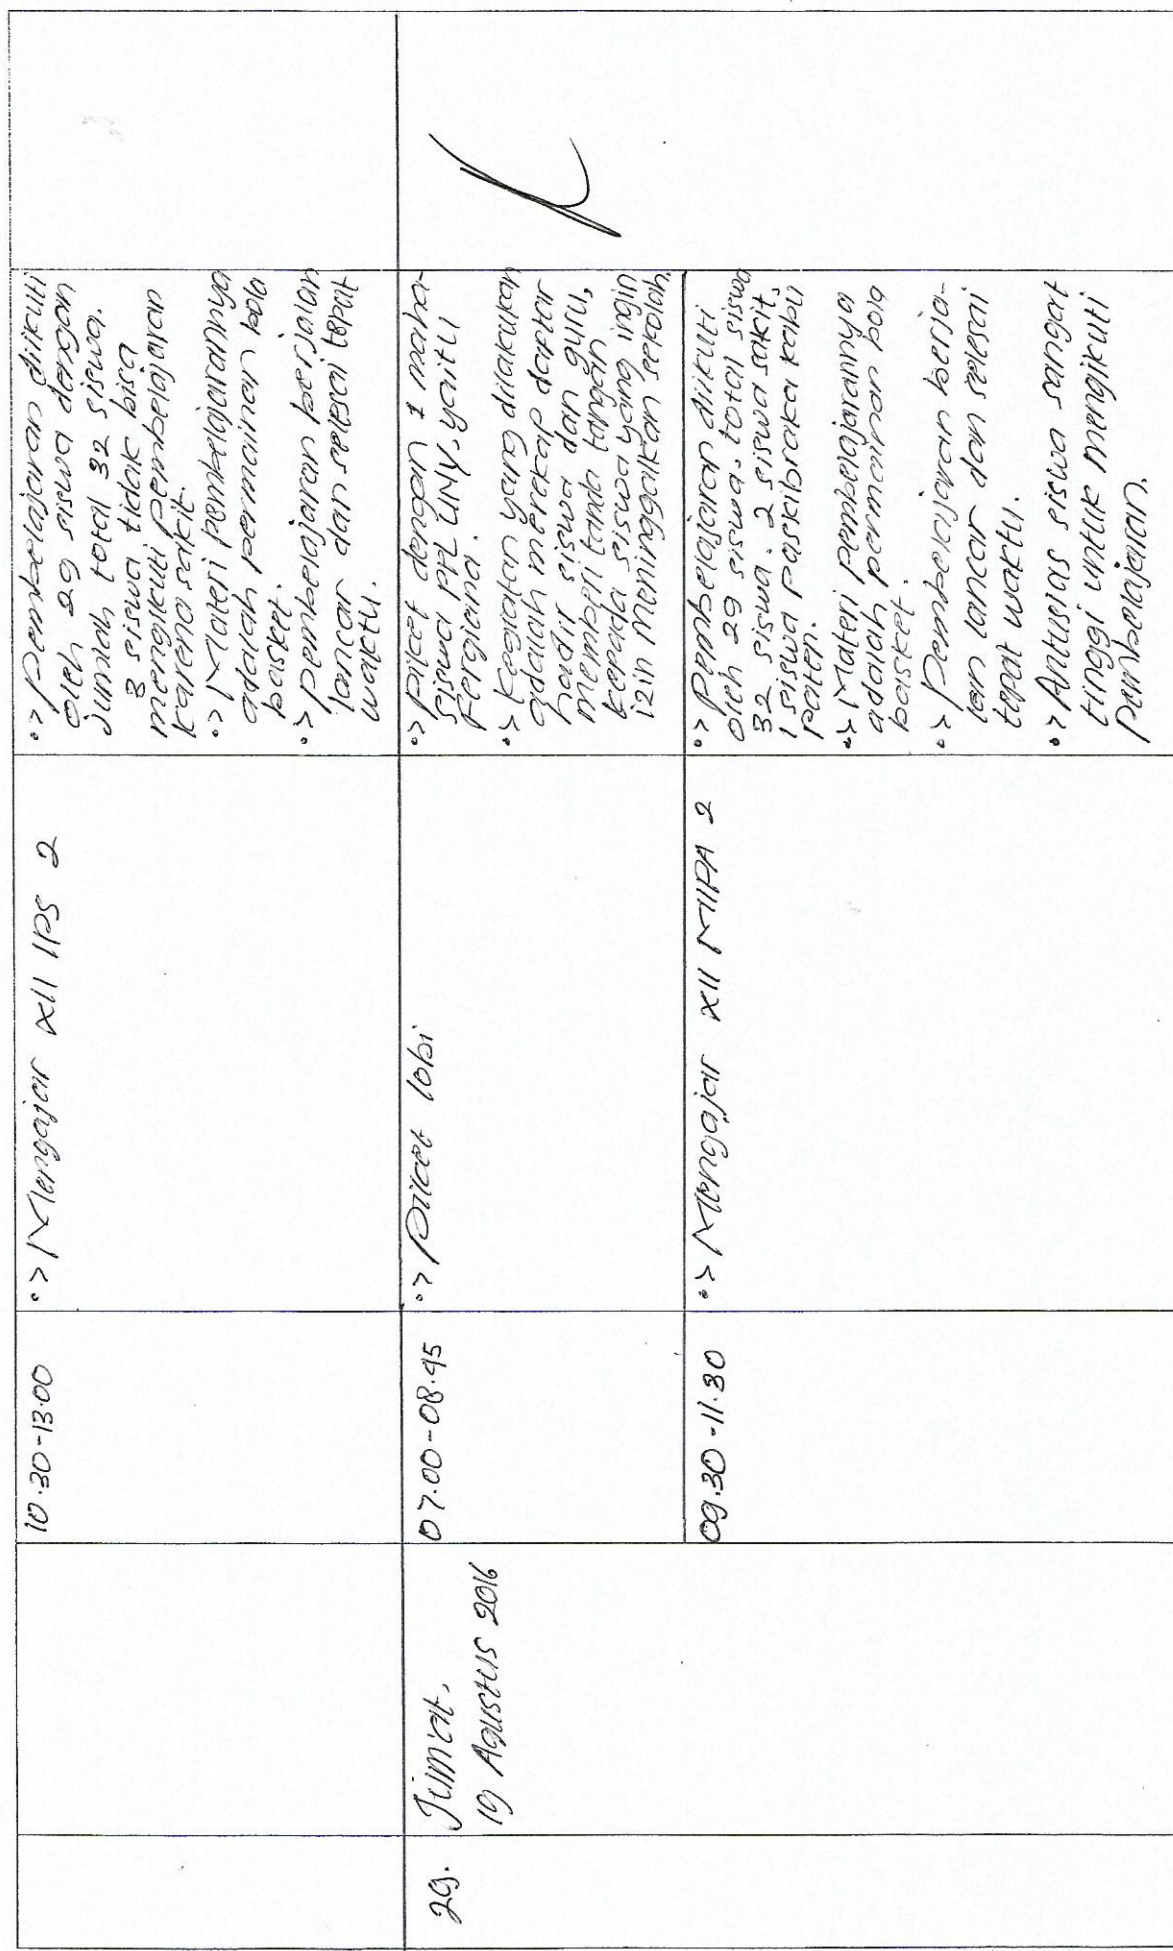 10.30-13.00
•> Mengajar XII IPS 2
•> Pembelajaran diikuti
oleh 29 siswa dengan
jumlah total 32 siswa.
3 siswa tidak bisa
mengikuti pembelajaran
karena sakit.
•> Materi pembelajarannya
adalah permainan bola
basket.
•> Pembelajaran berjalan
lancar dan selesai tepat
waktu.
29.
Jum'at,
19 Agustus 2016
07.00-08.45
•> Piket lobi
•> Piket dengan 1 maha-
siswa PPL UNY, yaitu
Fergiana.
•> Kegiatan yang dilakukan
adalah merekap daftar
hadir siswa dan guru,
memberi tanda tangan
kepada siswa yang ingin
izin meninggalkan sekolah.
09.30-11.30
•> Mengajar XII MIPA 2
•> Pembelajaran diikuti
oleh 29 siswa, total siswa
32 siswa. 2 siswa sakit,
1 siswa paskibraka kabu
paten.
•> Materi pembelajarannya
adalah permainan bola
basket.
•> Pembelajaran berja-
lan lancar dan selesai
tepat waktu.
•> Antusias siswa sangat
tinggi untuk mengikuti
pembelajaran.